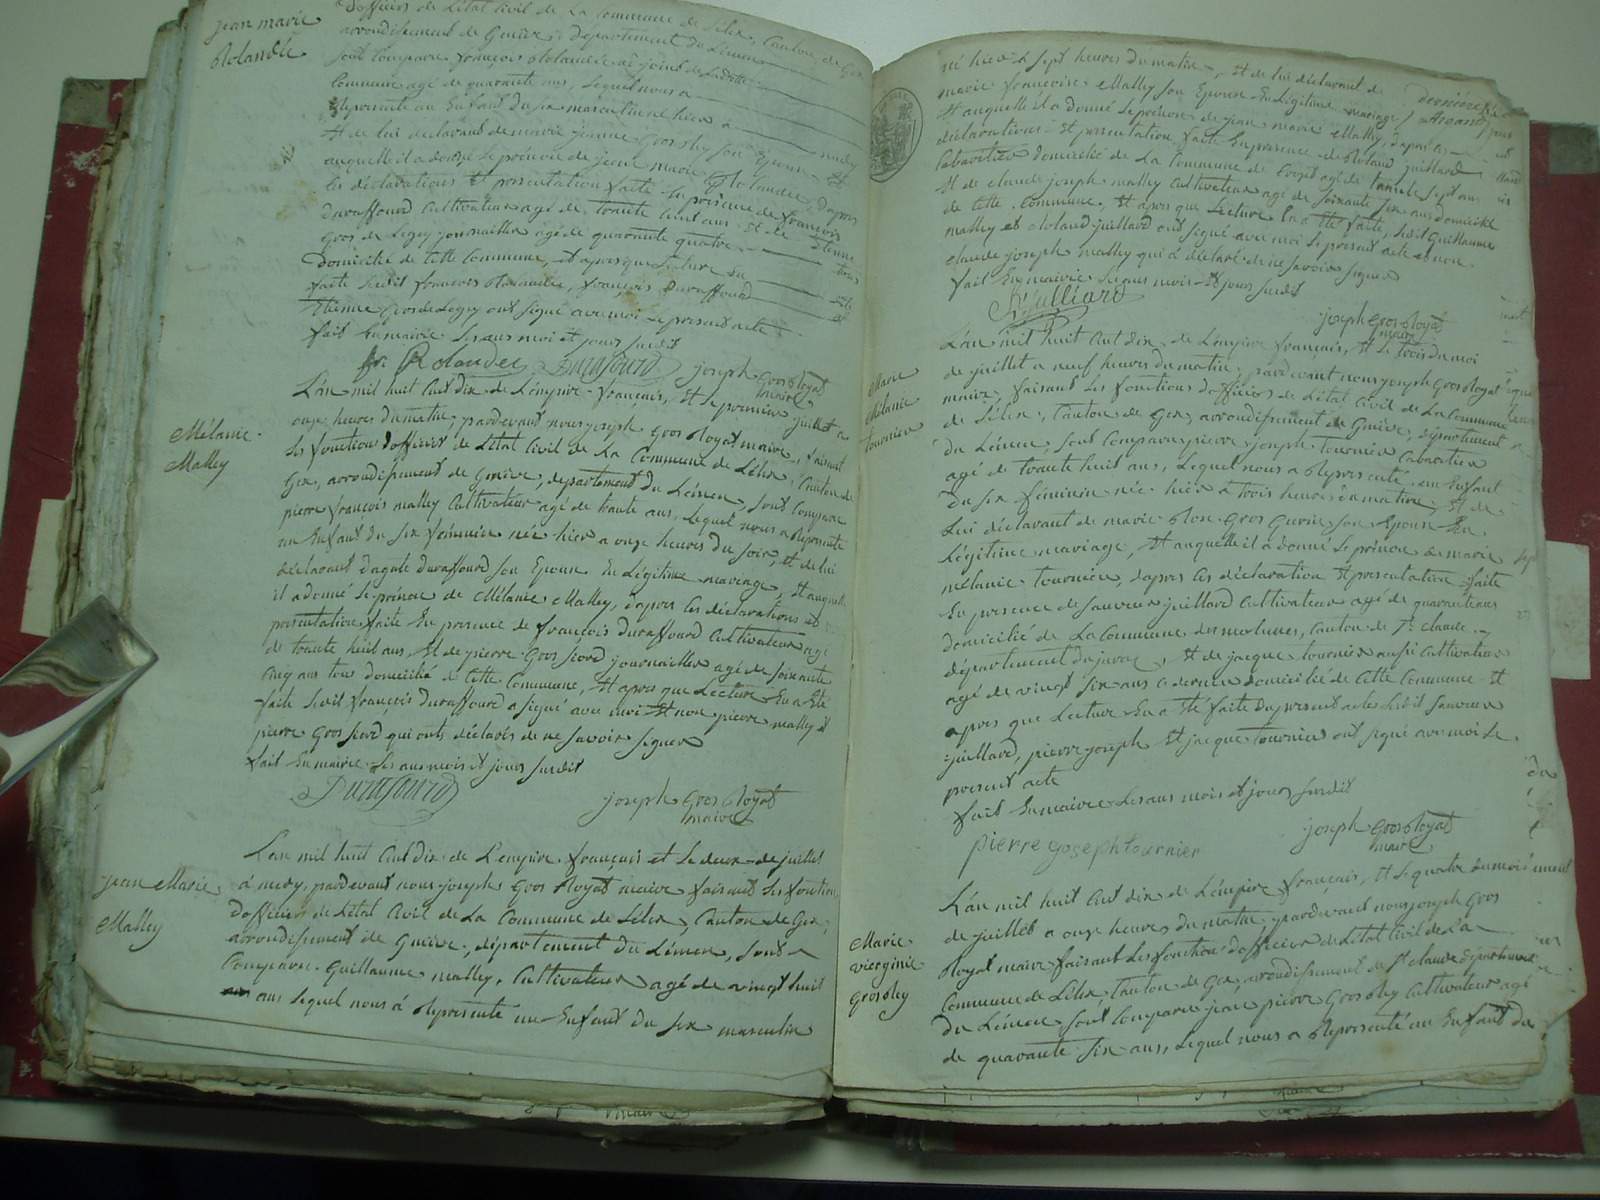 jean marie
Rolandée
d'officier de L'état Civil de La Commune de Lélex, Canton de Gex
arrondissement de Genève, département du Léman
sont Comparu françois Rolandée adjoint de Ladite
Commune agé de quarante ans, Lequel nous a
Représenté un Enfant du sex masculin né hier à
Et de lui déclarant de marie jeanne Grosgley son Epouse
auquelle il a donné Le prénom de jean marie Rolandée, dapres
les déclarations Et presentation faite En presence de françois
Duraffourd Cultivateur agé de trante huit ans Et de Etienne
Gros de Legey journaillier agé de quarante quatre
domicilié de Cette Commune, Et apres que Lecture En
faite Ledit françois Rolandée, françois Duraffourd
Etienne Gros de Legey ont Signé avec moi Le present acte
fait En mairie Les ans moi et jours Susdit
fr Rolandez Durafourd joseph GrosRoyat
maire
Mélanie
Malley
L'an mil huit Cent dix de L'empire français, Et Le premier juillet a
onze heures du matin, pardevant nous joseph Gros Royat maire, faisant
Les fonction d'officier de L'état Civil de La Commune de Lélex, Canton de
Gex, arrondissement de Genève, département du Léman, Sont Comparu
pierre françois malley Cultivateur agé de trante ans, Lequel nous a Représenté
un Enfant du Sex féminin née hier a onze heures du Soir, et de lui
déclarant dagate duraffourd Son Epouse En Légitime mariage, Et auquelle
il a donné Le prénom de Mélanie Malley, dapres les déclarations et
presentation faite En presence de françois Duraffourd Cultivateur agé
de trante huit ans, Et de pierre Gros fiord journaillier agé de Soixante
Cinq ans tous domicilié de Cette Commune, Et apres que Lecture En a Eté
faite Ledit françois duraffourd a signé avec moi Et non pierre malley et
pierre Gros fiord qui ont déclarés de ne Savoir Signer
fait En mairie Les ans mois et jours Susdit
Durafourd joseph Gros Royat
maire
jean Marie
Malley
L'an mil huit Cent dix de L'empire français et Le deux de juillet
à midy, pardevant nous joseph Gros Royat maire faisant Les fonction
d'officier de L'état Civil de La Commune de Lélex, Canton de Gex,
arrondissement de Genève, département du Léman, Sont
Comparu Guillaume malley, Cultivateur agé de vingt huit
ans Lequel nous à Représenté un Enfant du Sex masculin
né hier à sept heures du matin, Et de lui déclarant de
marie françoise Malley Son Epouse En Légitime mariage,
Et auquelle il a donné Le prénom de jean marie Malley, dapres les
déclarations Et presentation faite En presence de Roland juillard
Cabaretier domicilié de La Commune de agé de trante Sept ans
Et de claude joseph malley Cultivateur agé de Soixante Six ans domicilié
de Cette Commune, Et apres que Lecture En a Eté faite, Ledit Guillaume
malley et Roland juillard ont Signé avec moi Le present acte et non
claude joseph malley qui à déclaré de ne Savoir Signer
fait En mairie Les ans mois Et jours Susdit
R Julliard joseph GrosRoyat
maire
Marie
Mélanie
tournier
L'an mil huit Cent dix, de L'empire français, Et Le trois du moi
de juillet a neuf heures du matin, pardevant nous joseph Gros Royat
maire, faisant Les fonctions d'officier de L'état Civil de La Commune
de Lélex, Canton de Gex, arrondissement de Genève, département
du Léman, Sont Comparu pierre joseph tournier Cabaretier
agé de trante huit ans, Lequel nous a Représenté un Enfant
du Sex féminin née hier à trois heures du matin, Et de
Lui déclarant de marie Rose Gros Gurin Son Epouse En
Légitime mariage, Et auquelle il à donné Le prénom de marie
mélanie tournier, dapres Les déclaration Et presentation faite
En presence de Sauveur juillard Cultivateur agé de quarante ans
domicilié de La Commune des molunes, Canton de St. Claude,
département du jura, Et de jacque tournier aussi Cultivateur
agé de vingt Six ans Ce dernier domicilié de Cette Commune Et
apres que Lecture En a Eté faite du present acte Ledit Sauveur
juillard, pierre joseph Et jacque tournier ont Signé avec moi Le
present acte
fait En mairie Les ans mois et jours Susdit
pierre joseph tournier joseph GrosRoyat
maire
Marie
vierginie
Grosgley
L'an mil huit Cent dix de L'empire français, Et Le quatre du moi
de juillet a onze heures du matin pardevant nous joseph Gros
Royat maire faisant Les fonction d'officier de L'état Civil de La
Commune de Lélex, Canton de Gex, arrondissement de St Claude département
du Léman Sont Comparu jean pierre Grosgley Cultivateur agé
de quarante Six ans, Lequel nous a Représenté un Enfant du